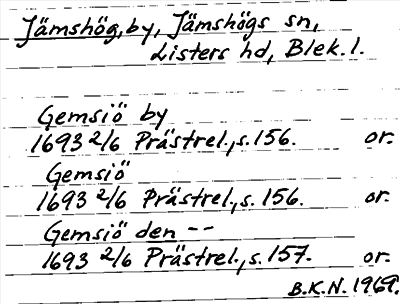 Jämshög, by, Jämshögs sn,
Listers hd, Blek. l.
Gemsiö by
1693 2/6 Prästrel., s. 156. or.
Gemsiö
1693 2/6 Prästrel., s. 156. or.
Gemsiö den --
1693 2/6 Prästrel., s. 157. or.
B.K.N. 1969.